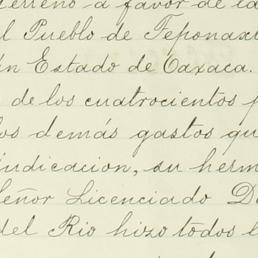 terreno a favor de la
l Pueblo de Teponaxt
n Estado de Oaxaca.
de los cuatrocientos p
los demás gastos qu
indicacion, su herm
Señor Licenciado D
del Rio hizo todos l